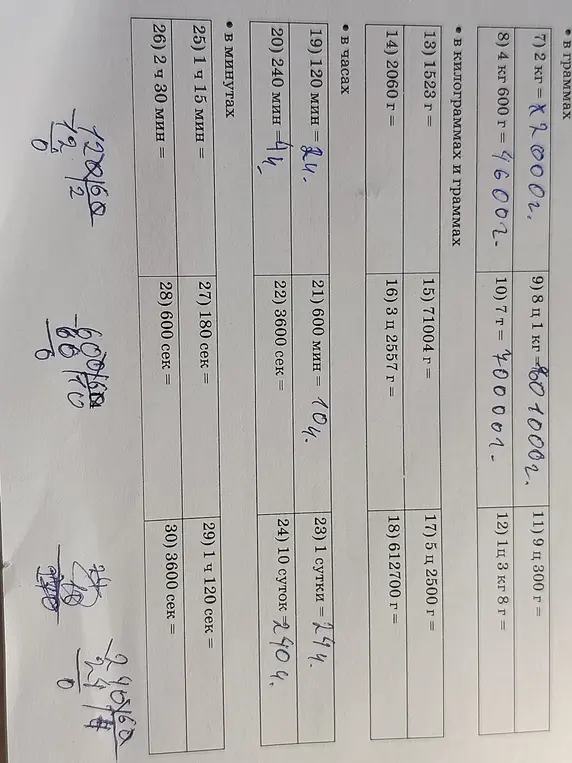 • в граммах
7) 2 кг = 2000г. 9) 8 ц 1 кг = 801000г. 11) 9 ц 300 г =
8) 4 кг 600 г = 4600г. 10) 7 т = 70000г. 12) 1ц 3 кг 8 г =
• в килограммах и граммах
13) 1523 г = 15) 71004 г = 17) 5 ц 2500 г =
14) 2060 г = 16) 3 ц 2557 г = 18) 612700 г =
• в часах
19) 120 мин = 2ч. 21) 600 мин = 10ч. 23) 1 сутки = 24ч.
20) 240 мин = 4ч. 22) 3600 сек = 24) 10 суток = 240ч.
• в минутах
25) 1 ч 15 мин = 27) 180 сек = 29) 1 ч 120 сек =
26) 2 ч 30 мин = 28) 600 сек = 30) 3600 сек =
120 60 600 60 240 60
12 2 60 10 24 4
0 0 0